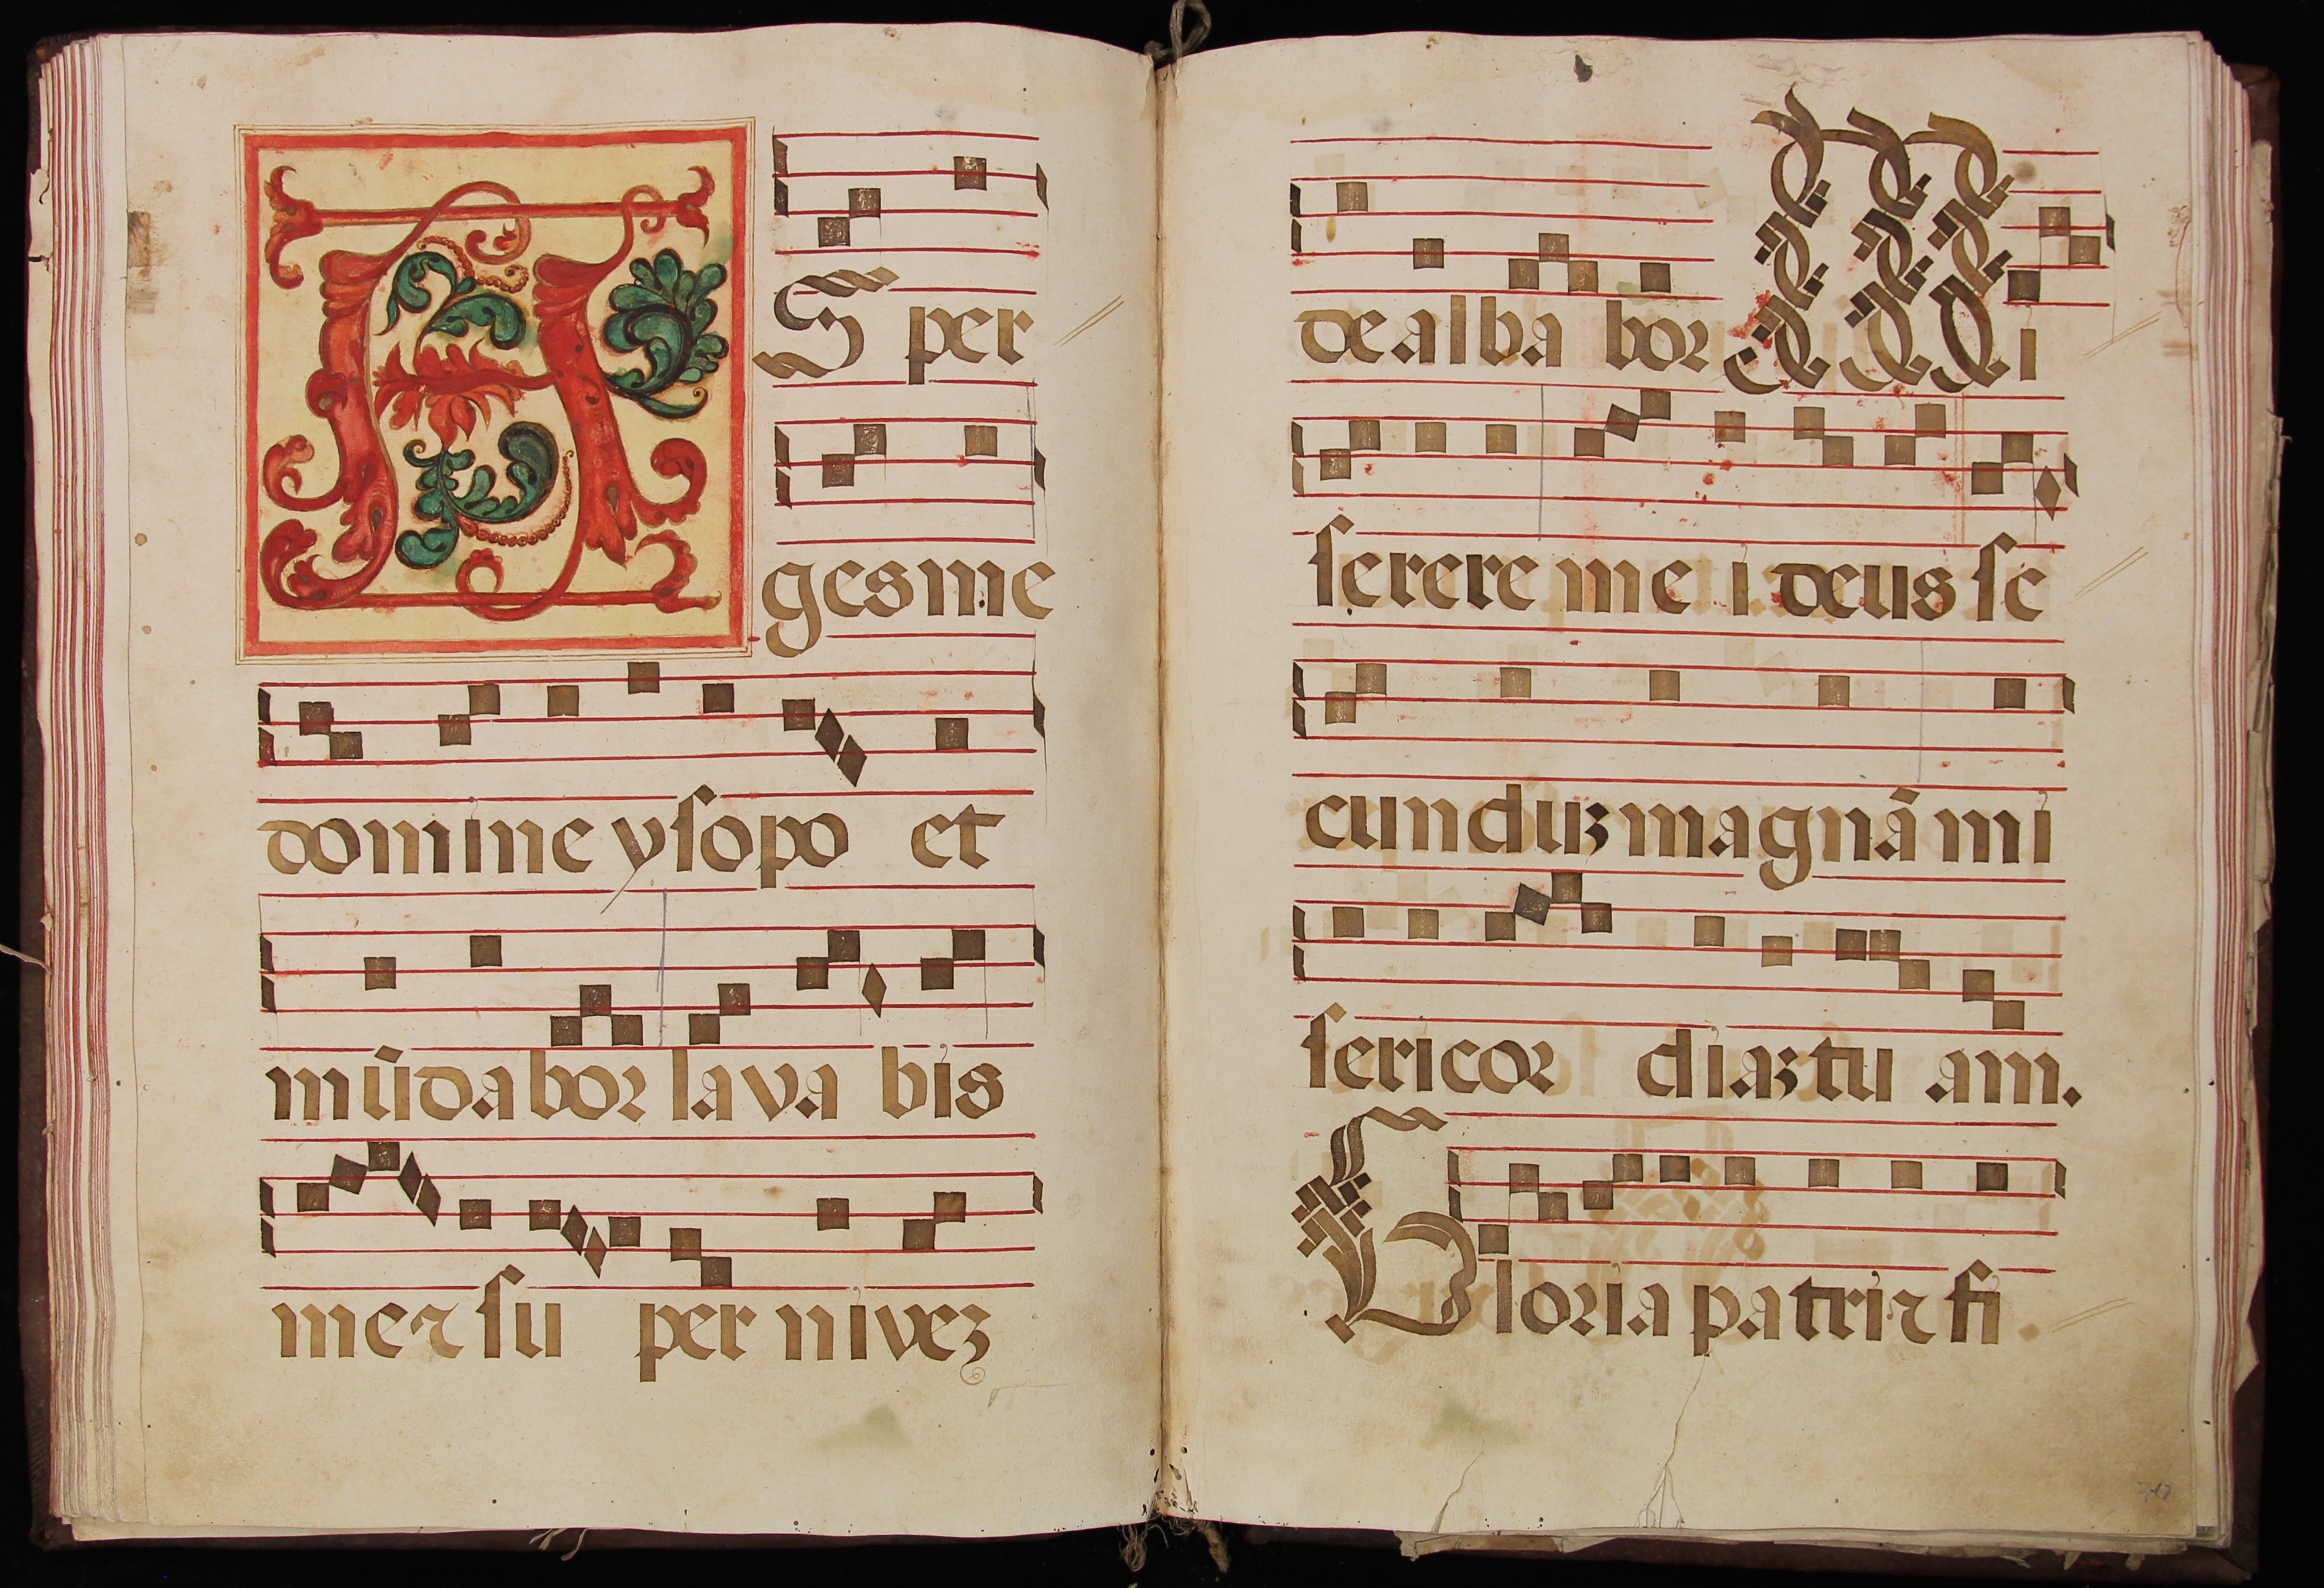 AS per
ges me
domine ysopo et
mūdabor lava bis
me ⁊ su per nivez
dealba bor Mi
serere mei deus se
cunduz magnā mi
sericor diaz tu am.
Gloria patri ⁊ fi